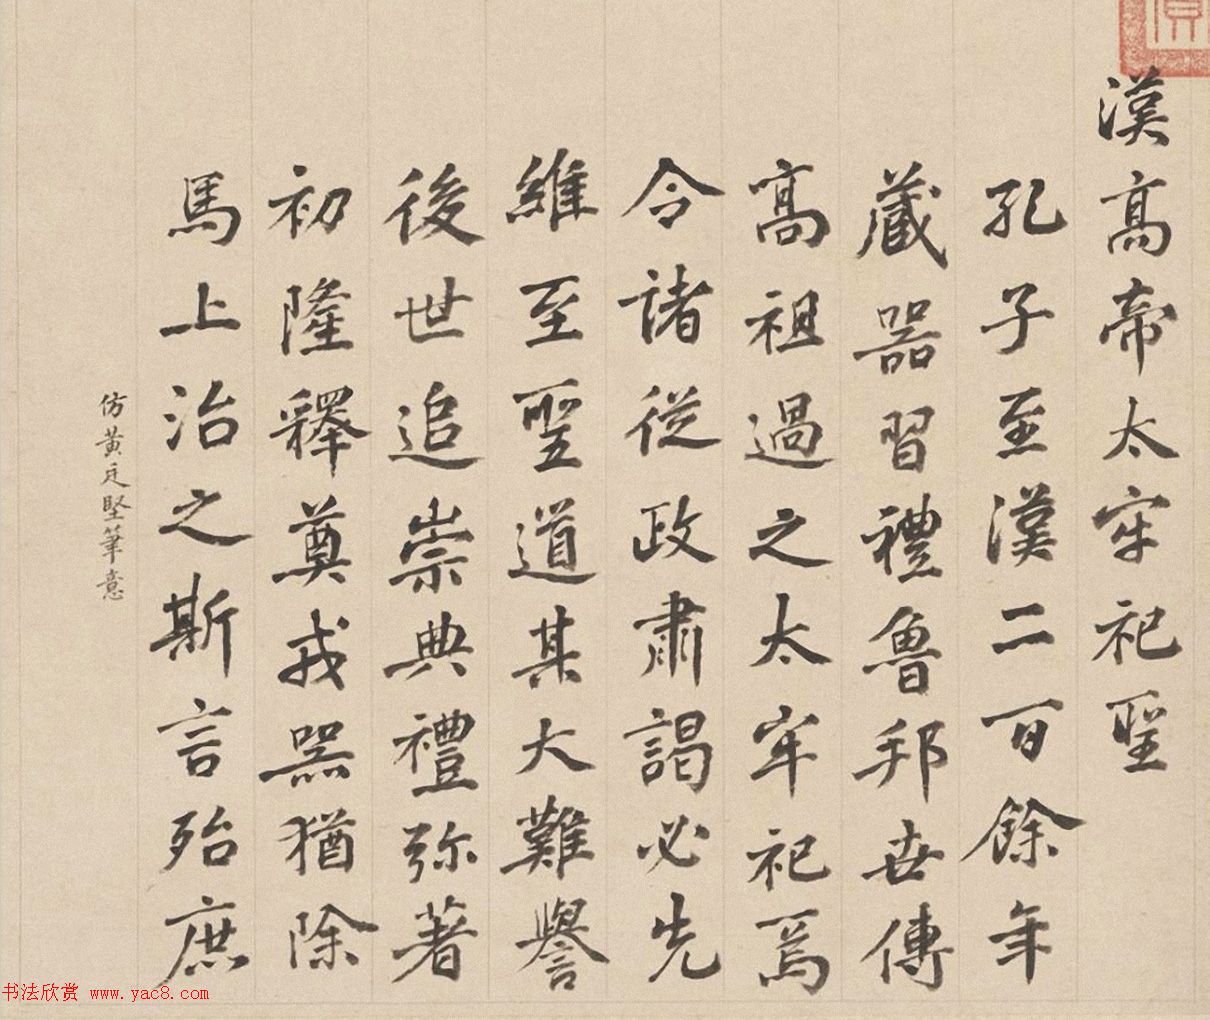 漢高帝太牢祀聖
孔子至漢二百餘年
藏器習禮魯邦世傳
高祖過之太牢祀焉
令諸從政肅謁必先
維至聖道其大難譽
後世追崇典禮弥著
初隆釋奠戎器猶除
馬上治之斯言殆庶
仿黃廷堅筆意
书法欣赏 www.yac8.com